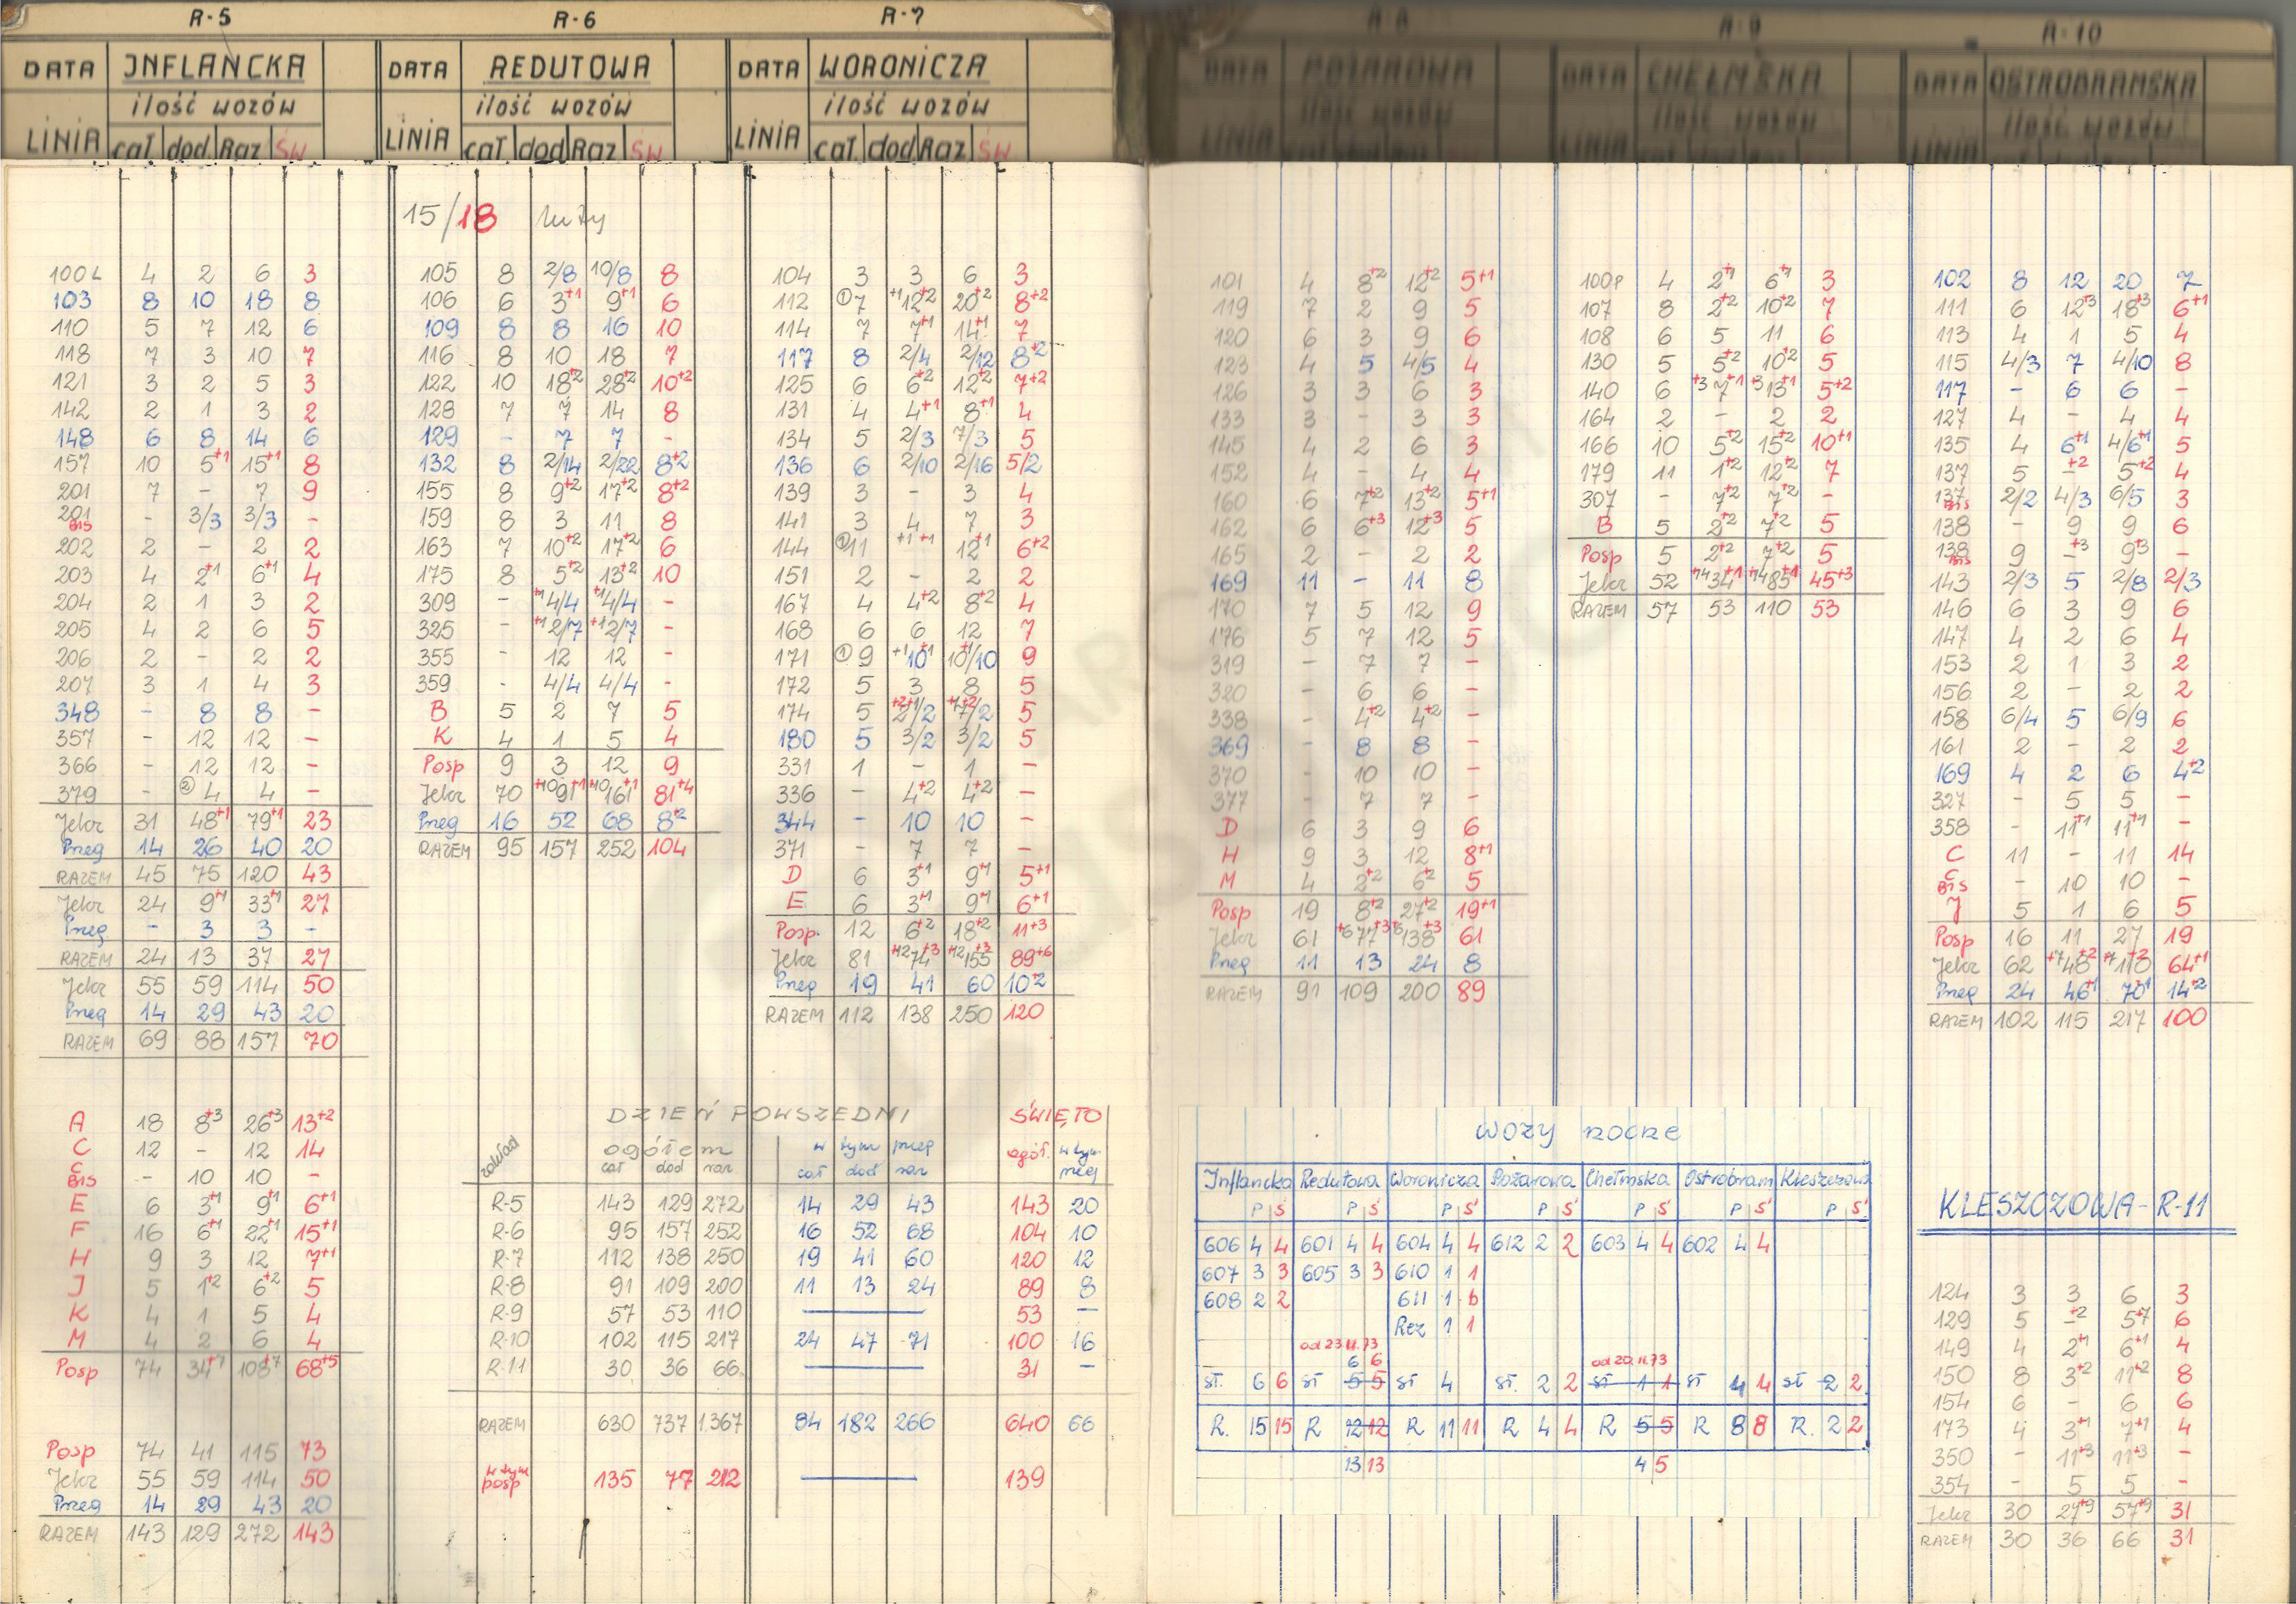 R-5
DATA INFLANCKA
ilość wozów
LINIA cał dod Raz ŚW
100L 4 2 6 3
103 8 10 18 8
110 5 7 12 6
118 7 3 10 7
121 3 2 5 3
142 2 1 3 2
148 6 8 14 6
157 10 5+1 15+1 8
201 7 - 7 9
201 BIS - 3/3 3/3 -
202 2 - 2 2
203 4 2+1 6+1 4
204 2 1 3 2
205 4 2 6 5
206 2 - 2 2
207 3 1 4 3
348 - 8 8 -
357 - 12 12 -
366 - 12 12 -
379 - ② 4 4 -
Jelcz 31 48+1 79+1 23
Przeg 14 26 40 20
RAZEM 45 75 120 43
Jelcz 24 9+1 33+1 27
Przeg - 3 3 -
RAZEM 24 13 37 27
Jelcz 55 59 114 50
Przeg 14 29 43 20
RAZEM 69 88 157 70
A 18 8+3 26+3 13+2
C 12 - 12 14
C BIS - 10 10 -
E 6 3+1 9+1 6+1
F 16 6+1 22+1 15+1
H 9 3 12 7+1
J 5 1+2 6+2 5
K 4 1 5 4
M 4 2 6 4
Posp 74 34+7 108+7 68+5
Posp 74 41 115 73
Jelcz 55 59 114 50
Przeg 14 29 43 20
RAZEM 143 129 272 143
R-6
DATA REDUTOWA
ilość wozów
LINIA cał dod Raz ŚW
15/18 luty
105 8 2/8 10/8 8
106 6 3+1 9+1 6
109 8 8 16 10
116 8 10 18 7
122 10 18+2 28+2 10+2
128 7 7 14 8
129 - 7 7 -
132 8 2/14 2/22 8+2
155 8 9+2 17+2 8+2
159 8 3 11 8
163 7 10+2 17+2 6
175 8 5+2 13+2 10
309 - +1 4/4 +1 4/4 -
325 - +1 2/7 +1 2/7 -
355 - 12 12 -
359 - 4/4 4/4 -
B 5 2 7 5
K 4 1 5 4
Posp 9 3 12 9
Jelcz 70 +10 91+1 +10 161+1 81+4
Przeg 16 52 68 8+2
RAZEM 95 157 252 104
R-7
DATA WORONICZA
ilość wozów
LINIA cał. dod Raz ŚW
104 3 3 6 3
112 ① 7 +1 12+2 20+2 8+2
114 7 7+1 14+1 7
117 8 2/4 2/12 8+2
125 6 6+2 12+2 7+2
131 4 4+1 8+1 4
134 5 2/3 7/3 5
136 6 2/10 2/16 5/2
139 3 - 3 4
141 3 4 7 3
144 ① 11 +1 +1 12+1 6+2
151 2 - 2 2
167 4 4+2 8+2 4
168 6 6 12 7
171 ① 9 +1 10+1 10+1/10 9
172 5 3 8 5
174 5 5
180 5 3/2 3/2 5
331 1 - 1 -
336 - 4+2 4+2 -
344 - 10 10 -
371 - 7 7 -
D 6 3+1 9+1 5+1
E 6 3+1 9+1 6+1
Posp. 12 6+2 18+2 11+3
Jelcz 81 +12 74+3 +12 155+3 89+6
Przeg 19 41 60 10+2
RAZEM 112 138 250 120
DZIEŃ POWSZEDNI ŚWIĘTO
zakład ogółem w tym przeg ogół. w tym przeg
cał dod raz cał dod raz
R-5 143 129 272 14 29 43 143 20
R-6 95 157 252 16 52 68 104 10
R-7 112 138 250 19 41 60 120 12
R-8 91 109 200 11 13 24 89 8
R-9 57 53 110 — 53 —
R-10 102 115 217 24 47 71 100 16
R-11 30 36 66 — 31 —
RAZEM 630 737 1367 84 182 266 640 66
w tym posp 135 77 212 — 139
R-8
DATA POŻAROWA
ilość wozów
LINIA
101 4 8+2 12+2 5+1
119 7 2 9 5
120 6 3 9 6
123 4 5 4/5 4
126 3 3 6 3
133 3 - 3 3
145 4 2 6 3
152 4 - 4 4
160 6 7+2 13+2 5+1
162 6 6+3 12+3 5
165 2 - 2 2
169 11 - 11 8
170 7 5 12 9
176 5 7 12 5
319 - 7 7 -
320 - 6 6 -
338 - 4+2 4+2 -
369 - 8 8 -
370 - 10 10 -
377 - 7 7 -
D 6 3 9 6
H 9 3 12 8+1
M 4 2+2 6+2 5
Posp 19 8+2 27+2 19+1
Jelcz 61 +6 77+3 +6 138+3 61
Przeg 11 13 24 8
RAZEM 91 109 200 89
R-9
DATA CHEŁMSKA
ilość wozów
LINIA
100P 4 2+1 6+1 3
107 8 2+2 10+2 7
108 6 5 11 6
130 5 5+2 10+2 5
140 6 +3 7+1 +3 13+1 5+2
164 2 - 2 2
166 10 5+2 15+2 10+1
179 11 1+2 12+2 7
307 - 7+2 7+2 -
B 5 2+2 7+2 5
Posp 5 2+2 7+2 5
Jelcz 52 +14 34+1 +14 85+1 45+3
RAZEM 57 53 110 53
WOZY NOCNE
Inflancka Redutowa Woronicza Pożarowa Chełmska Ostrobram Kleszczowa
P Ś P Ś P Ś P Ś P Ś P Ś P Ś
606 4 4 601 4 4 604 4 4 612 2 2 603 4 4 602 4 4
607 3 3 605 3 3 610 1 1
608 2 2 611 1 b
Rez 1 1
od 23.II.73 od 20.II.73
6 6
sł. 6 6 sł 5 5 sł 4 sł. 2 2 sł 1 1 sł 4 4 sł 2 2
R. 15 15 R 12 12 R 11 11 R 4 4 R 5 5 R 8 8 R. 2 2
13 13 4 5
R-10
DATA OSTROBRAMSKA
ilość wozów
LINIA
102 8 12 20 7
111 6 12+3 18+3 6+1
113 4 1 5 4
115 4/3 7 4/10 8
117 - 6 6 -
127 4 - 4 4
135 4 6+1 4/6+1 5
137 5 -+2 5+2 4
137 BIS 2/2 4/3 6/5 3
138 - 9 9 6
138 BIS 9 -+3 9+3 -
143 2/3 5 2/8 2/3
146 6 3 9 6
147 4 2 6 4
153 2 1 3 2
156 2 - 2 2
158 6/4 5 6/9 6
161 2 - 2 2
169 4 2 6 4+2
327 - 5 5 -
358 - 11+1 11+1 -
C 11 - 11 14
C BIS - 10 10 -
J 5 1 6 5
Posp 16 11 27 19
Jelcz 62 +7 48+2 +7 110+2 64+1
Przeg 24 46+1 70+1 14+2
RAZEM 102 115 217 100
KLESZCZOWA - R-11
124 3 3 6 3
129 5 -+2 5+7 6
149 4 2+1 6+1 4
150 8 3+2 11+2 8
154 6 - 6 6
173 4 3+1 7+1 4
350 - 11+3 11+3 -
354 - 5 5 -
Jelcz 30 27+9 57+9 31
RAZEM 30 36 66 31